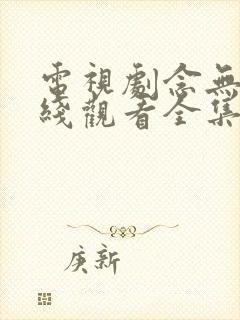 電視劇念無
綫觀看全集
庚新